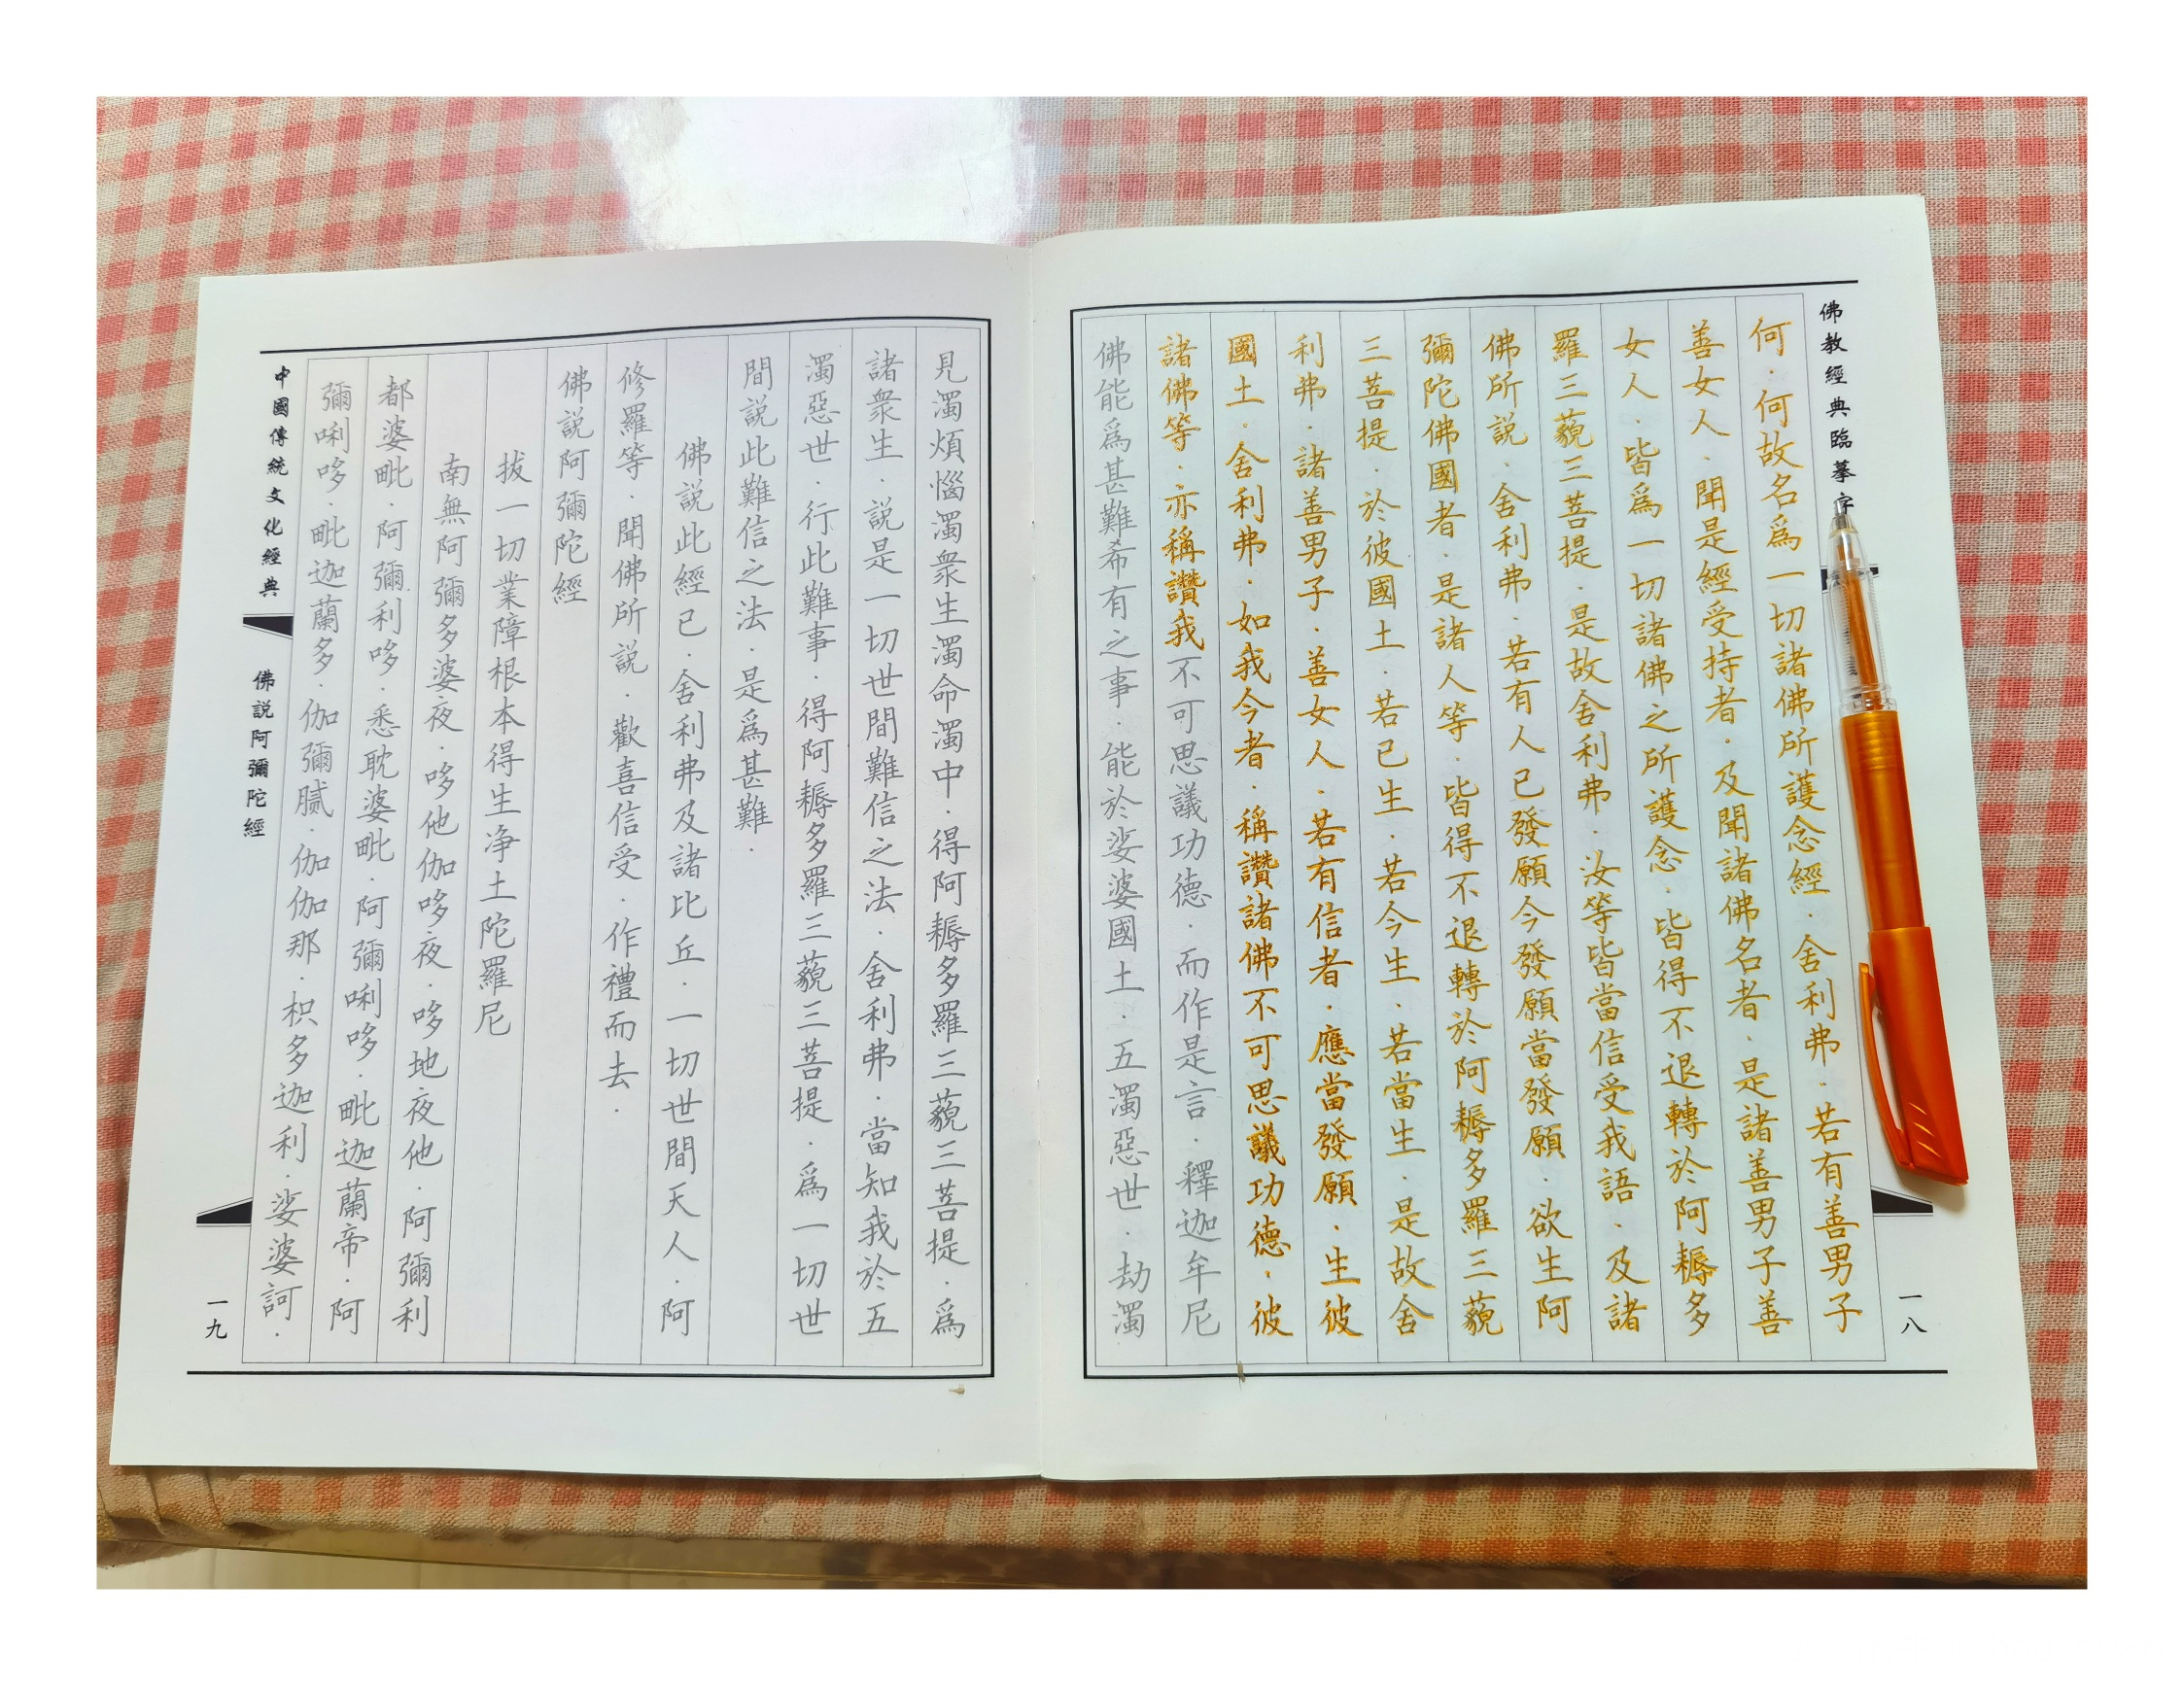 佛教經典臨摹字
一八
何·何故名爲一切諸佛所護念經·舍利弗·若有善男子
善女人·聞是經受持者·及聞諸佛名者·是諸善男子善
女人·皆爲一切諸佛之所護念·皆得不退轉於阿耨多
羅三藐三菩提·是故舍利弗·汝等皆當信受我語·及諸
佛所説·舍利弗·若有人已發願今發願當發願·欲生阿
彌陀佛國者·是諸人等·皆得不退轉於阿耨多羅三藐
三菩提·於彼國土·若已生·若今生·若當生·是故舍
利弗·諸善男子·善女人·若有信者·應當發願·生彼
國土·舍利弗·如我今者·稱讚諸佛不可思議功德·彼
諸佛等·亦稱讚我不可思議功德·而作是言·釋迦牟尼
佛能爲甚難希有之事·能於娑婆國土·五濁惡世·劫濁
見濁煩惱濁衆生濁命濁中·得阿耨多羅三藐三菩提·爲
諸衆生·説是一切世間難信之法·舍利弗·當知我於五
濁惡世·行此難事·得阿耨多羅三藐三菩提·爲一切世
間説此難信之法·是爲甚難·
佛説此經已·舍利弗及諸比丘·一切世間天人·阿
修羅等·聞佛所説·歡喜信受·作禮而去·
佛説阿彌陀經
拔一切業障根本得生净土陀羅尼
南無阿彌多婆夜·哆他伽哆夜·哆地夜他·阿彌利
都婆毗·阿彌利哆·悉耽婆毗·阿彌唎哆·毗迦蘭帝·阿
彌唎哆·毗迦蘭多·伽彌膩·伽伽那·枳多迦利·娑婆訶·
中國傳統文化經典
佛説阿彌陀經
一九